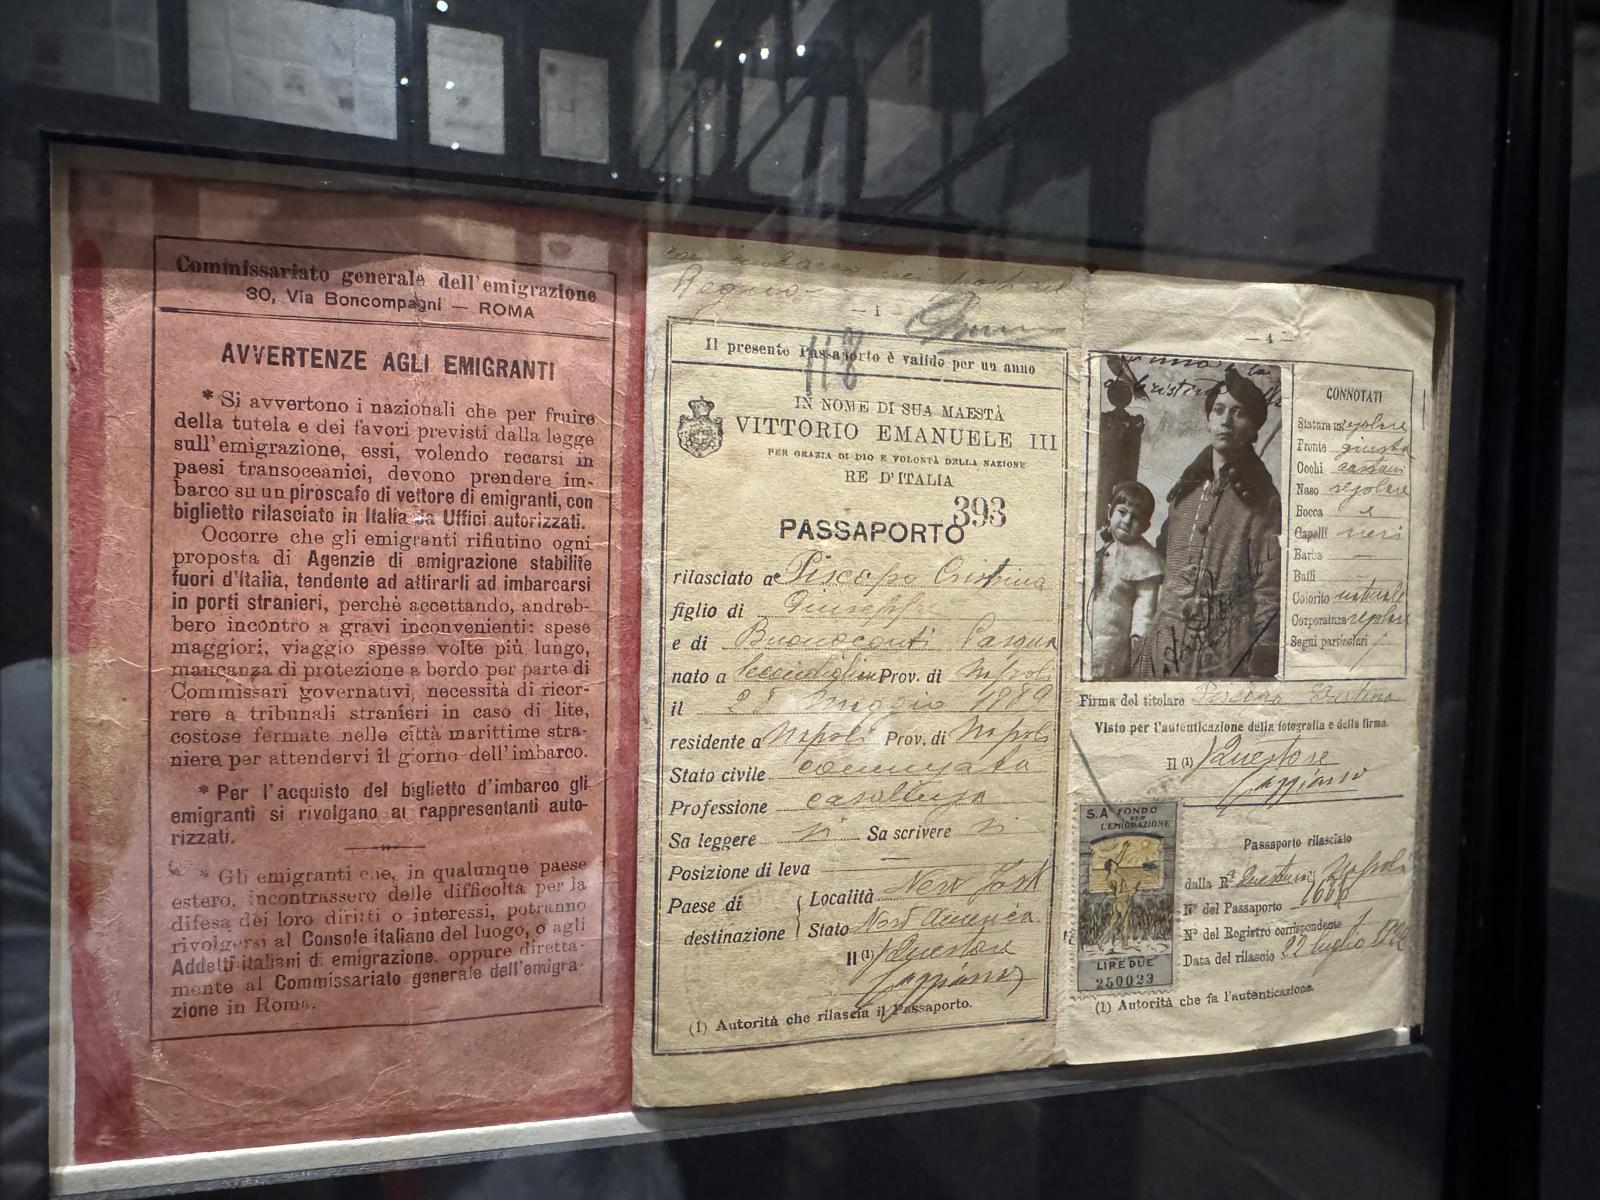 Commissariato generale dell'emigrazione
30, Via Boncompagni — ROMA
AVVERTENZE AGLI EMIGRANTI
* Si avvertono i nazionali che per fruire
della tutela e dei favori previsti dalla legge
sull'emigrazione, essi, volendo recarsi in
paesi transoceanici, devono prendere im-
barco su un piroscafo di vettore di emigranti, con
biglietto rilasciato in Italia da Uffici autorizzati.
Occorre che gli emigranti rifiutino ogni
proposta di Agenzie di emigrazione stabilite
fuori d'Italia, tendente ad attirarli ad imbarcarsi
in porti stranieri, perchè accettando, andreb-
bero incontro a gravi inconvenienti: spese
maggiori, viaggio spesse volte più lungo,
mancanza di protezione a bordo per parte di
Commissari governativi, necessità di ricor-
rere a tribunali stranieri in caso di lite,
costose fermate nelle città marittime stra-
niere per attendervi il giorno dell'imbarco.
* Per l'acquisto del biglietto d'imbarco gli
emigranti si rivolgano ai rappresentanti auto-
rizzati.
* Gli emigranti che, in qualunque paese
estero, incontrassero delle difficoltà per la
difesa dei loro diritti o interessi, potranno
rivolgersi al Console italiano del luogo, o agli
Addetti italiani di emigrazione, oppure diretta-
mente al Commissariato generale dell'emigra-
zione in Roma.
Regno
— 1 —
Il presente Passaporto è valido per un anno
118
IN NOME DI SUA MAESTÀ
VITTORIO EMANUELE III
PER GRAZIA DI DIO E VOLONTÀ DELLA NAZIONE
RE D'ITALIA
393
PASSAPORTO
rilasciato a Piscopo Cristina
figlio di Giuseppe
e di Buonoconti Pasqua
nato a Secondigliano Prov. di Napoli
il 28 Maggio 1889
residente a Napoli Prov. di Napoli
Stato civile coniugata
Professione casalinga
Sa leggere si Sa scrivere si
Posizione di leva —
Paese di destinazione
Località New York
Stato Nord America
Il (1) Questore
(1) Autorità che rilascia il Passaporto.
— 4 —
CONNOTATI
Statura regolare
Fronte giusta
Occhi castani
Naso regolare
Bocca
Capelli neri
Barba —
Baffi
Colorito naturale
Corporatura regolare
Segni particolari
Firma del titolare Piscopo Cristina
Visto per l'autenticazione della fotografia e della firma.
Il (1) Questore
S.A FONDO
PER
L'EMIGRAZIONE
LIRE DUE
250023
Passaporto rilasciato
dalla Rª Questura Napoli
N° del Passaporto
N° del Registro corrispondente
Data del rilascio 22 luglio
(1) Autorità che fa l'autenticazione.